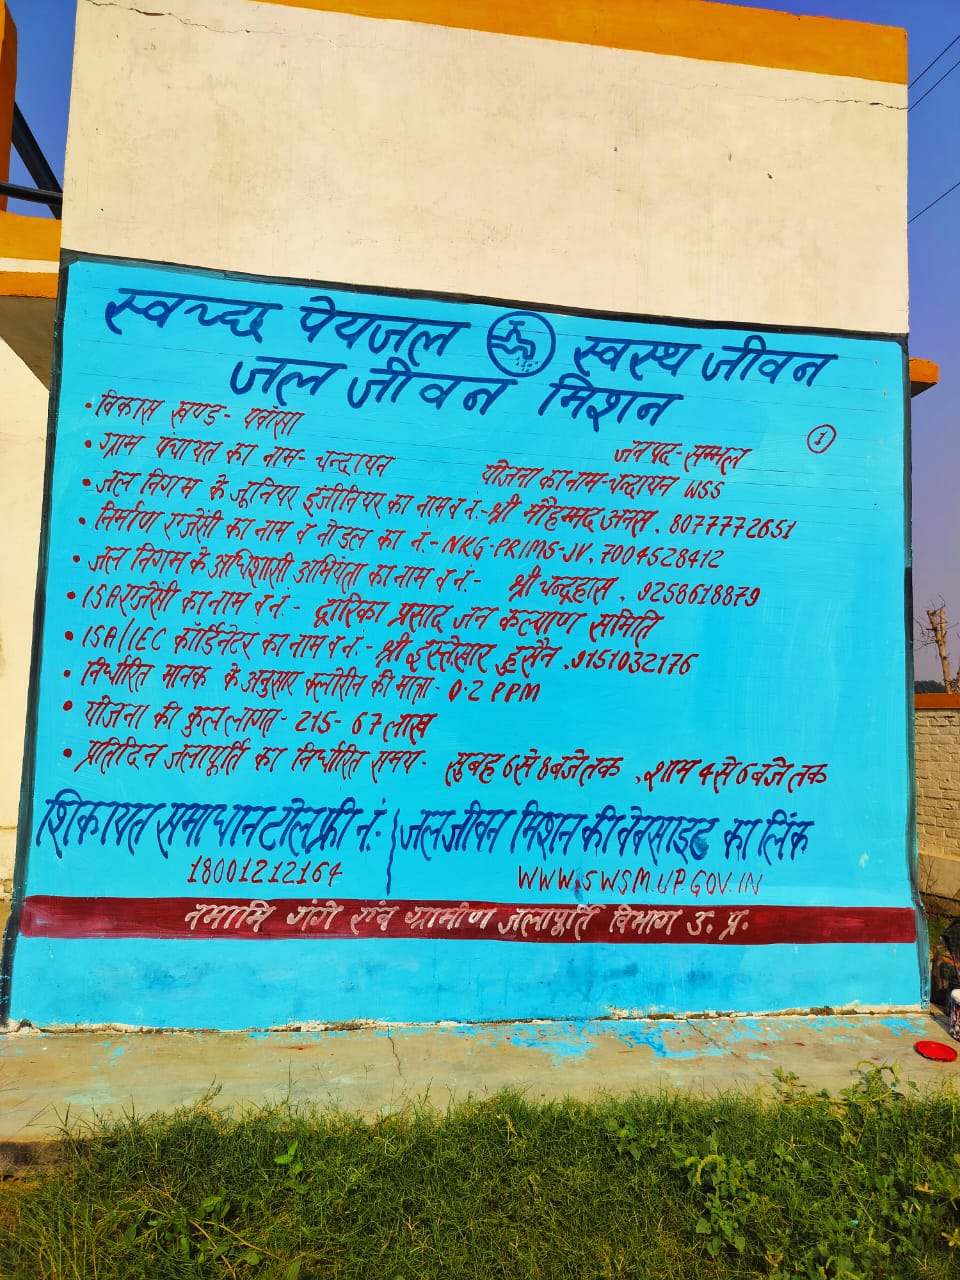 स्वच्छ पेयजल स्वस्थ जीवन
जल जीवन मिशन
1
• विकास खण्ड- पवांसा
जनपद- सम्भल
• ग्राम पंचायत का नाम- चन्द्रायन
योजना का नाम- चन्द्रायन WSS
• जल निगम के जूनियर इंजीनियर का नाम व नं:- श्री मौहम्मद अनस, 8077772651
• निर्माण एजेंसी का नाम व नोडल का नं:- NKG-PRIMS-JV, 7004528412
• जल निगम के अधिशासी अभियंता का नाम व नं:- श्री चन्द्रहास, 9258618879
• ISA एजेंसी का नाम व नं:- द्वारिका प्रसाद जन कल्याण समिति
• ISA/IEC कॉर्डिनेटर का नाम व नं:- श्री इस्तेसार हुसैन, 9151032176
• निर्धारित मानक के अनुसार क्लोरीन की मात्रा- 0.2 PPM
• योजना की कुल लागत- 215-67 लाख
• प्रतिदिन जलापूर्ति का निर्धारित समय- सुबह 6 से 8 बजे तक, शाम 4 से 6 बजे तक
शिकायत समाधान टोल फ्री नं:
18001212164
जल जीवन मिशन की वेबसाइट का लिंक
WWW.SWSM.UP.GOV.IN
नमामि गंगे एंव ग्रामीण जलापूर्ति विभाग उ. प्र.